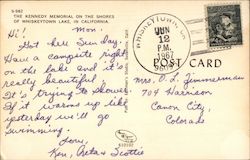 S-982
THE KENNEDY MEMORIAL ON THE SHORES
OF WHISKEYTOWN LAKE, IN CALIFORNIA.
Hi! Mon.
Got here Sunday.
Have a campsite right
on the lake and it's
really beautiful.
It's trying to shower.
If it warms up like
yesterday we'll go
swimming.
Love,
Ken, Reta & Scottie
WHISKEYTOWN, CA
JUN
12
P.M.
1967
POST CARD
Mrs. O. L. Zimmerman
704 Harrison
Canon City,
Colorado